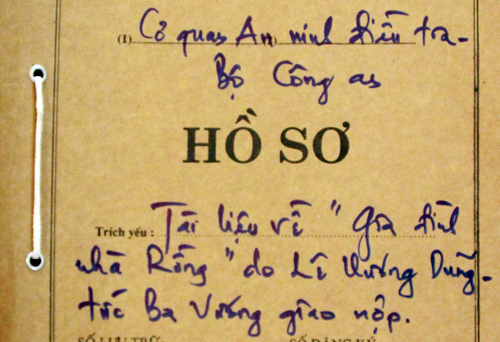 (1) Cơ quan An ninh điều tra-
Bộ Công an
HỒ SƠ
Trích yếu: Tài liệu về "Gia đình
nhà Rồng" do Lê Vương Dũng-
tức Ba Vương giao nộp.
SỐ LƯU TRỮ: SỐ ĐĂNG KÝ